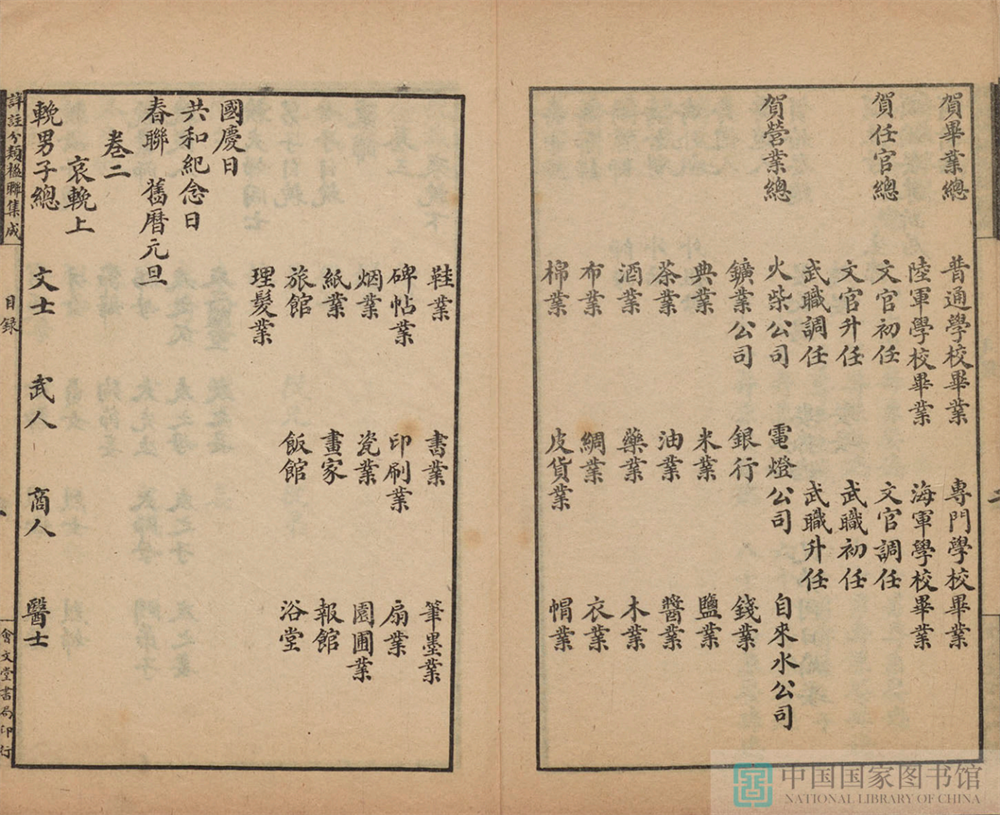 賀畢業總 普通學校畢業 專門學校畢業
陸軍學校畢業 海軍學校畢業
賀任官總 文官初任 文官調任
文官升任 武職初任
武職調任 武職升任
賀營業總 火柴公司 電燈公司 自來水公司
鑛業公司 銀行 錢業
典業 米業 鹽業
茶業 油業 醬業
酒業 藥業 木業
布業 綢業 衣業
棉業 皮貨業 帽業
鞋業 書業 筆墨業
碑帖業 印刷業 扇業
烟業 瓷業 園圃業
紙業 畫家 報館
旅館 飯館 浴堂
理髮業
國慶日
共和紀念日
春聯 舊曆元旦
卷二
哀輓上
輓男子總 文士 武人 商人 醫士
詳註分類楹聯集成
目錄
會文堂書局印行
中国国家图书馆
NATIONAL LIBRARY OF CHINA